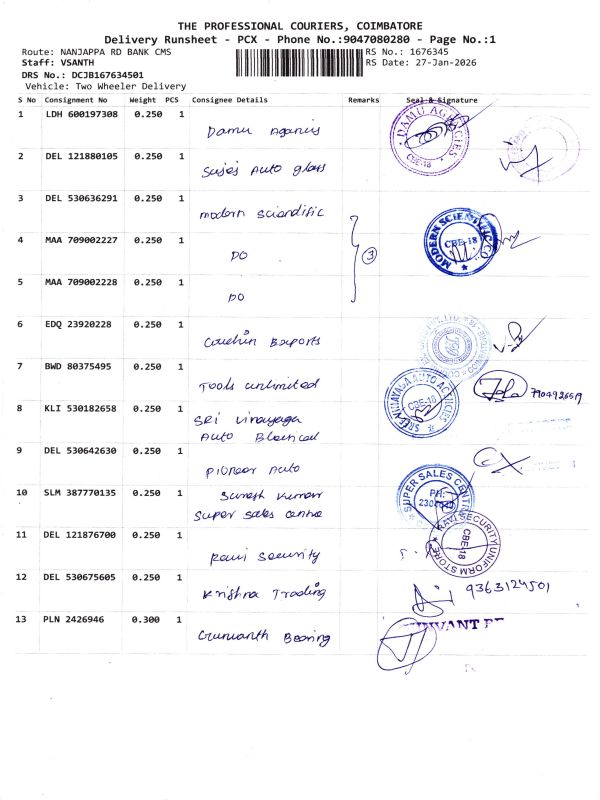 THE PROFESSIONAL COURIERS, COIMBATORE
Delivery Runsheet - PCX - Phone No.:9047080280 - Page No.:1
Route: NANJAPPA RD BANK CMS
RS No.: 1676345
Staff: VSANTH
RS Date: 27-Jan-2026
DRS No.: DCJB167634501
Vehicle: Two Wheeler Delivery
S No Consignment No Weight PCS Consignee Details Remarks Seal & Signature
1 LDH 600197308 0.250 1
Damu Agencies
DAMU AGENCIES CBE-18
2 DEL 121880105 0.250 1
Auto glass
3 DEL 530636291 0.250 1
modern scientific
MODERN SCIENTIFIC CO CBE-18
4 MAA 709002227 0.250 1
DO
3
5 MAA 709002228 0.250 1
DO
6 EDQ 23920228 0.250 1
Exports
7 BWD 80375495 0.250 1
Tools unlimited
8 KLI 530182658 0.250 1
Sri Vinayaga
Auto
CBE-18
9 DEL 530642630 0.250 1
pioneer Auto
10 SLM 387770135 0.250 1
Suresh Kumar
Super sales centre
SUPER SALES CENTRE PH:
11 DEL 121876700 0.250 1
Ravi Security
RAVI SECURITY UNIFORM STORE CBE-18
12 DEL 530675605 0.250 1
Krishna Trading
9363124501
13 PLN 2426946 0.300 1
Bearing